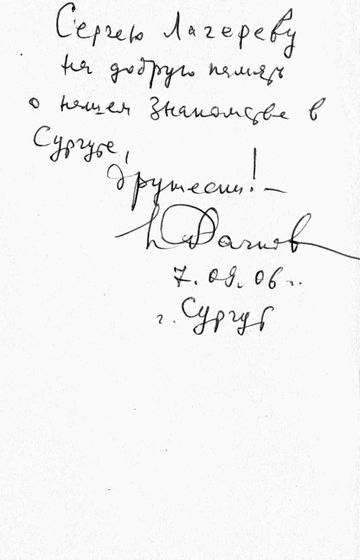 Сергею Лагереву
на добрую память
о нашем знакомстве в
Сургуте,
дружески! –
7.09.06 г.
г. Сургут